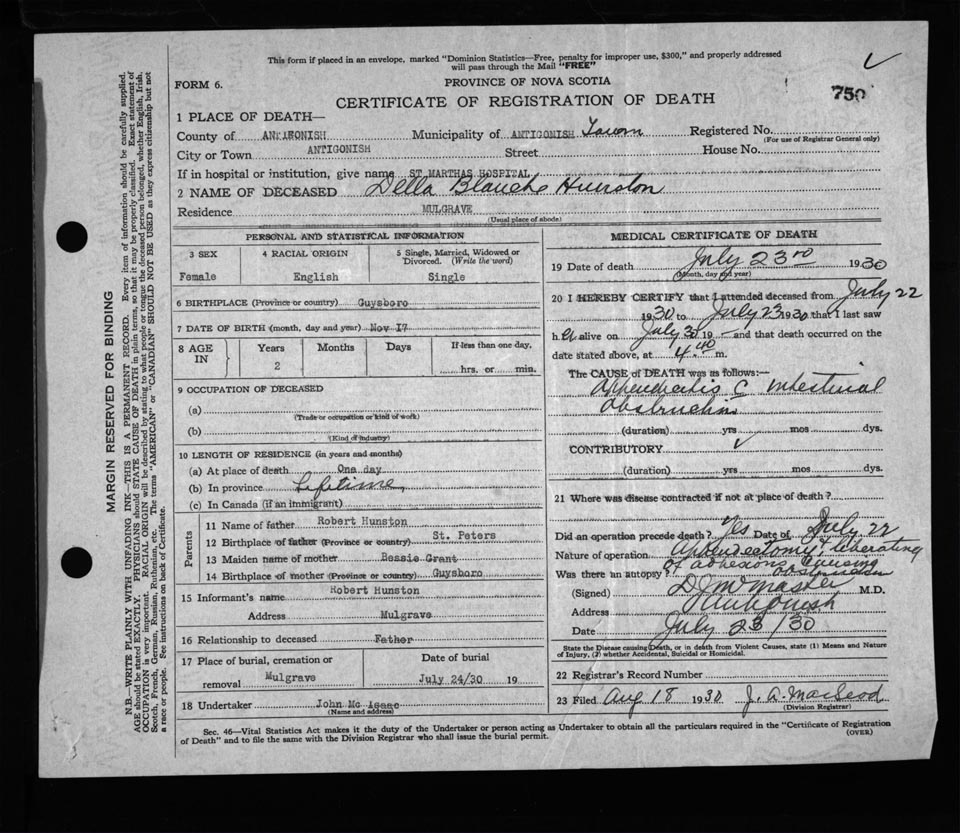 This form if placed in an envelope, marked "Dominion Statistics—Free, penalty for improper use, $300," and properly addressed
will pass through the Mail "FREE"
FORM 6.
PROVINCE OF NOVA SCOTIA
750
CERTIFICATE OF REGISTRATION OF DEATH
1 PLACE OF DEATH—
County of ANTIGONISH Municipality of ANTIGONISH Town Registered No.
(For use of Registrar General only)
City or Town ANTIGONISH Street House No.
If in hospital or institution, give name ST MARTHAS HOSPITAL
2 NAME OF DECEASED Della Blanche Hunston
Residence MULGRAVE
(Usual place of abode)
PERSONAL AND STATISTICAL INFORMATION
3 SEX 4 RACIAL ORIGIN 5 Single, Married, Widowed or
Divorced. (Write the word)
Female English Single
6 BIRTHPLACE (Province or country) Guysboro
7 DATE OF BIRTH (month, day and year) Nov 17
8 AGE IN Years Months Days If less than one day,
2 hrs. or min.
9 OCCUPATION OF DECEASED
(a)
(Trade or occupation or kind of work)
(b)
(Kind of industry)
10 LENGTH OF RESIDENCE (in years and months)
(a) At place of death One day
(b) In province Lifetime
(c) In Canada (if an immigrant)
Parents
11 Name of father Robert Hunston
12 Birthplace of father (Province or country) St. Peters
13 Maiden name of mother Bessie Grant
14 Birthplace of mother (Province or country) Guysboro
15 Informant's name Robert Hunston
Address Mulgrave
16 Relationship to deceased Father
17 Place of burial, cremation or Date of burial
removal Mulgrave July 24/30 19
18 Undertaker John Mc Isaac
(Name and address)
MEDICAL CERTIFICATE OF DEATH
19 Date of death July 23rd 1930
(Month, day and year)
20 I HEREBY CERTIFY that I attended deceased from July 22
1930 to July 23 1930 that I last saw
h er alive on July 19 and that death occurred on the
date stated above, at 4.40 m.
The CAUSE of DEATH was as follows:—
Appendicitis C Intestinal
obstruction
(duration) yrs mos dys.
CONTRIBUTORY
(duration) yrs mos dys.
21 Where was disease contracted if not at place of death?
Did an operation precede death? Yes Date of July 22
Nature of operation Appendectomy & liberating
of adhesions causing
Was there an autopsy? obstruction
(Signed) M.D.
Address Antigonish
Date July 23/30
State the Disease causing Death, or in death from Violent Causes, state (1) Means and Nature
of Injury, (2) whether Accidental, Suicidal or Homicidal.
22 Registrar's Record Number
23 Filed Aug 18 1930 J. A. MacLeod
(Division Registrar)
Sec. 46—Vital Statistics Act makes it the duty of the Undertaker or person acting as Undertaker to obtain all the particulars required in the "Certificate of Registration
of Death" and to file the same with the Division Registrar who shall issue the burial permit.
(OVER)
MARGIN RESERVED FOR BINDING
N.B.—WRITE PLAINLY WITH UNFADING INK—THIS IS A PERMANENT RECORD. Every item of information should be carefully supplied.
AGE should be stated EXACTLY. PHYSICIANS should STATE CAUSE OF DEATH in plain terms, so that it may be properly classified. Exact statement of
OCCUPATION is very important. RACIAL ORIGIN will be described by stating to what people or tongue the deceased person belonged, whether English, Irish,
Scotch, French, German, Russian, Ruthenian, etc. The terms "AMERICAN" or "CANADIAN" SHOULD NOT BE USED as they express citizenship but not
a race or people. See instructions on back of Certificate.